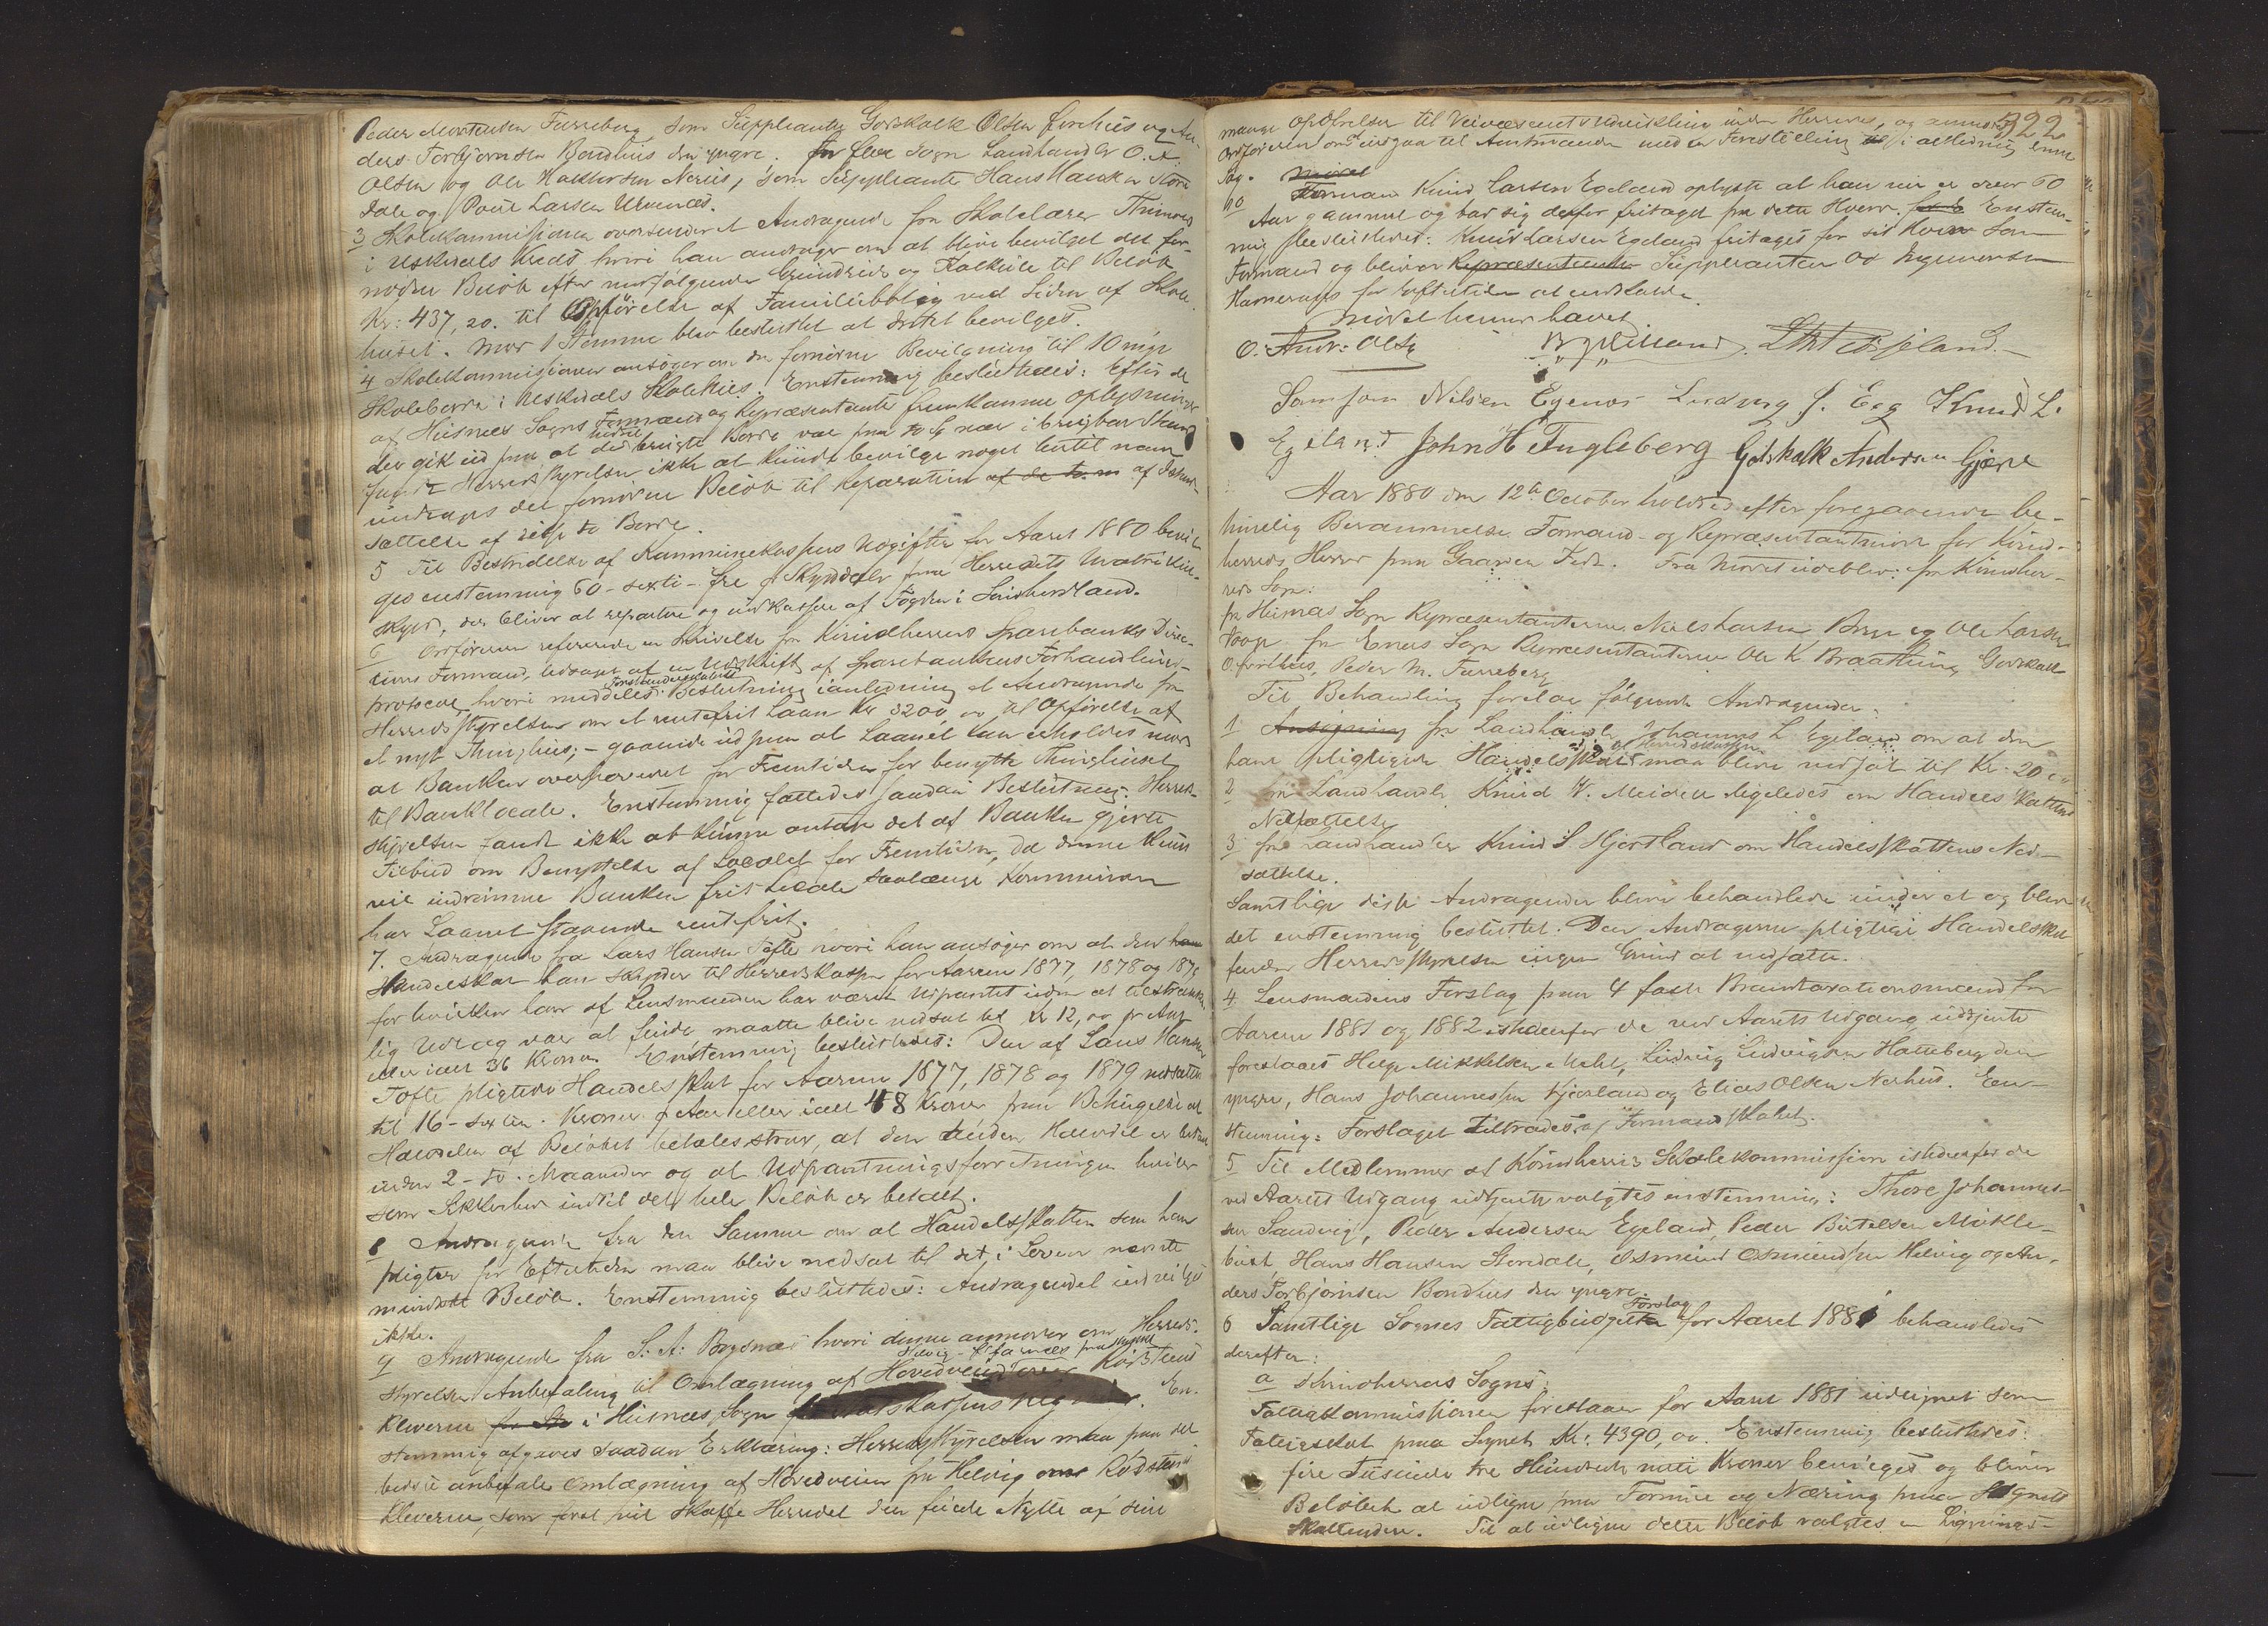 Peder Mortensen Furreberg, som Suppleanter Godskalk Olsen Forthus og An-
ders Torbjørnsen Bondhus den yngre. For Enes Sogn Landhandler O. A.
Olsen og Ole Haktorsen Nerhus, som Suppleanter Hans Hansen Store
dale og Poul Larsen Ulvenæs.
3 Skolekommissionen oversender et Andragende fra Skolelærer
i Uskedals Kreds hvori han andrager om at blive bevilget det for-
nødne Beløb efter medfølgende Grundrids og Kalkule til Beløb
Kr: 437,20. til Opførelse af Familiebolig ved Siden af Skole
huset. Mod 1 Stemme blev besluttet at Intet bevilges.
4 Skolekommissionen ansøger om den fornødne Bevilgning til 10 nye
Skoleborde i Uskedals Skolehus. Enstemmig besluttedes: Efter de
af Husnæs Sogns Formænd og Repræsentanter fremkomne Oplysninger
der gik ud paa at de hidtil brugte Borde var paa to nær i brugbar Stand
fandt Herredsstyrelsen ikke at kunde bevilge noget hertil men
undtages det fornødne Beløb til Reparation af de to af Istand-
sættelse af disse to Borde.
5 Til Bestridelse af Kommunekassens Udgifter for Aaret 1880 bevil
ges enstemmig 60 - sexti - Øre pr Skylddaler paa Herredets Matrikul-
skyld, der bliver at repartere og indkassere af Fogden i Søndhordland.
6 Ordføreren refererede en Skrivelse fra Kvindherreds Sparebanks Direc-
tions Formand, ledsaget af en Udskrift af Sparebankens Forhandlings-
protocol, hvori meddeles Forstanderskabets Beslutning i anledning et Andragende fra
Herredsstyrelsen om et rentefrit Laan Kr 3200 00 til Opførelse af
et nyt Thinghus; - gaaende ud paa at Laanet kan erholdes mod
at Banken overlades ret for Fremtiden for benytte Thinghuset
til Banklocale. Enstemmig fattedes saadan Beslutning: Herreds-
styrelsen fandt ikke at kunne antage det af Banken gjorte
Tilbud om Benyttelse af Localet for Fremtiden, da denne kun
vil indrømme Banken frit Locale saalænge Kommunen
har Laanet staaende rentefrit.
7. Andragende fra Lars Hansen Tofte hvori han ansøger om at den
Handelsskat han skylder til Herredskassen for Aarene 1877, 1878 og 1879
for hvilken han af Lensmanden har været udpantet uden at tilstrække
lig Udlæg var at finde maatte blive nedsat til Kr 12,00 pr Aar
eller ialt 36 Kroner. Enstemmig besluttedes: Den af Lars Hansen
Tofte pligtende Handelsskat for Aarene 1877, 1878 og 1879 nedsættes
til 16 - sexten - Kroner pr Aar eller ialt 48 Kroner paa Betingelse at
Halvdelen af Beløbet betales strax, at den anden Halvdel er betalt
inden 2 - to - Maaneder og at Udpantningsforretningen hviler
som Sikkerhed indtil det hele Beløb er betalt.
8 Andragende fra den Samme om at Handelsskatten som han
pligter for Eftertiden maa blive nedsat til det i Loven nævnte
mindste Beløb. Enstemmig besluttedes: Andragendet indvilges
ikke.
9 Andragende fra S. A. Bogsnæs hvori denne anmoder om Herreds-
styrelsens Anbefaling til Omlægning af Hovedveien over Rødsteens
Kleverne i Husnæs Sogn En-
stemmig afgaves saadan Erklæring: Herredsstyrelsen maa paa det
bedste anbefale Omlægning af Hovedveien fra Helvig over Rødsteens
Kleverne, som først vil skaffe Herredet den fulde Nytte af sine
322
mange Opofrelser til Veivæsenets Udvikling inden Herredet, og anmodes
Ordføreren om at indgaa til Amtmanden med en Forestilling i anledning denne
Sag.
10 Formand Knud Larsen Egeland oplyste at han nu er over 60
Aar gammel og bad sig derfor fritaget fra dette Hverv. Enstem-
mig besluttedes: Knud Larsen Egeland fritages for sit Hverv som
Formand og bliver Suppleanten Od Ingemorsen
Hamerager for Eftertiden at indkalde.
Mødet hermed hævet
O. Andr: Olsen
Samson Nilsen Egenes Ludvig J. Eeg Knud L.
Egeland John H Fugleberg Gotskalk Andersen Gjerde
Aar 1880 den 12te October holdtes efter foregaaende be-
hørelig Berammelse Formand- og Repræsentantmøde for Kvind-
herreds Herred paa Gaarden Fet. Fra Mødet udeblev: fra Kvindher-
reds Sogn:
fra Husnæs Sogn Repræsentanterne Niels Larsen og Ole Larsen
fra Enes Sogn Repræsentanterne Ole K. Braathung Godskalk
O. Forthus, Peder M. Furreberg
Til Behandling forelaa følgende Andragender:
1 Ansøgning fra Landhandler Johannes L. Egeland om at den
ham pligtende Handelsskat til Herredskassen maa blive nedsat til Kr. 20,00
2 fra Landhandler Knud W. Meidell ligeledes om Handelsskattens
Nedsættelse
3 fra Landhandler Knud S Hjertland om Handelsskattens Ned-
sættelse.
Samtlige disse Andragender blev behandlede under et og blev
det enstemmig besluttet: Den Andragerne pligtige Handelsskat
fandt Herredsstyrelsen ingen Grund at nedsætte.
4 Lensmandens Forslag paa 4 faste Brandtaxationsmænd for
Aarene 1881 og 1882 istedenfor de ved Aarets Udgang udtjente
foreslaaes Helge Mikkelsen Mehl, Ludvig Ludvigsen Hatteberg den
yngre, Hans Johannessen Kjærland og Elias Olsen Nerhus. Een-
stemmig: Forslaget tiltrædes af Formandskabet.
5 Til Medlemmer af Kvindherreds Skolekommission istedenfor de
ved Aarets Udgang udtjente valgtes enstemmig: Thore Johannes-
sen Sandvig, Peder Andersen Egeland, Peder Bottelsen Mukle-
bust, Hans Hansen Stordale, Osmund Osmundsen Helvig og An-
ders Torbjørnsen Bondhus den yngre.
6 Samtlige Sognes Fattigbudgetter Forslag for Aaret 1881 behandledes
derefter:
a Kvindherreds Sogns:
Fattigkommissionen foreslaaer for Aaret 1881 udlignet som
Fattigskat paa Sognet Kr. 4390,00. Enstemmig besluttedes:
fire Tusinde tre Hundrede niti Kroner bevilges og bliver
Beløbet at udligne paa Formue og Næring paa Sognets
Skatteydere. Til at udligne dette Beløb valgtes en Lignings-